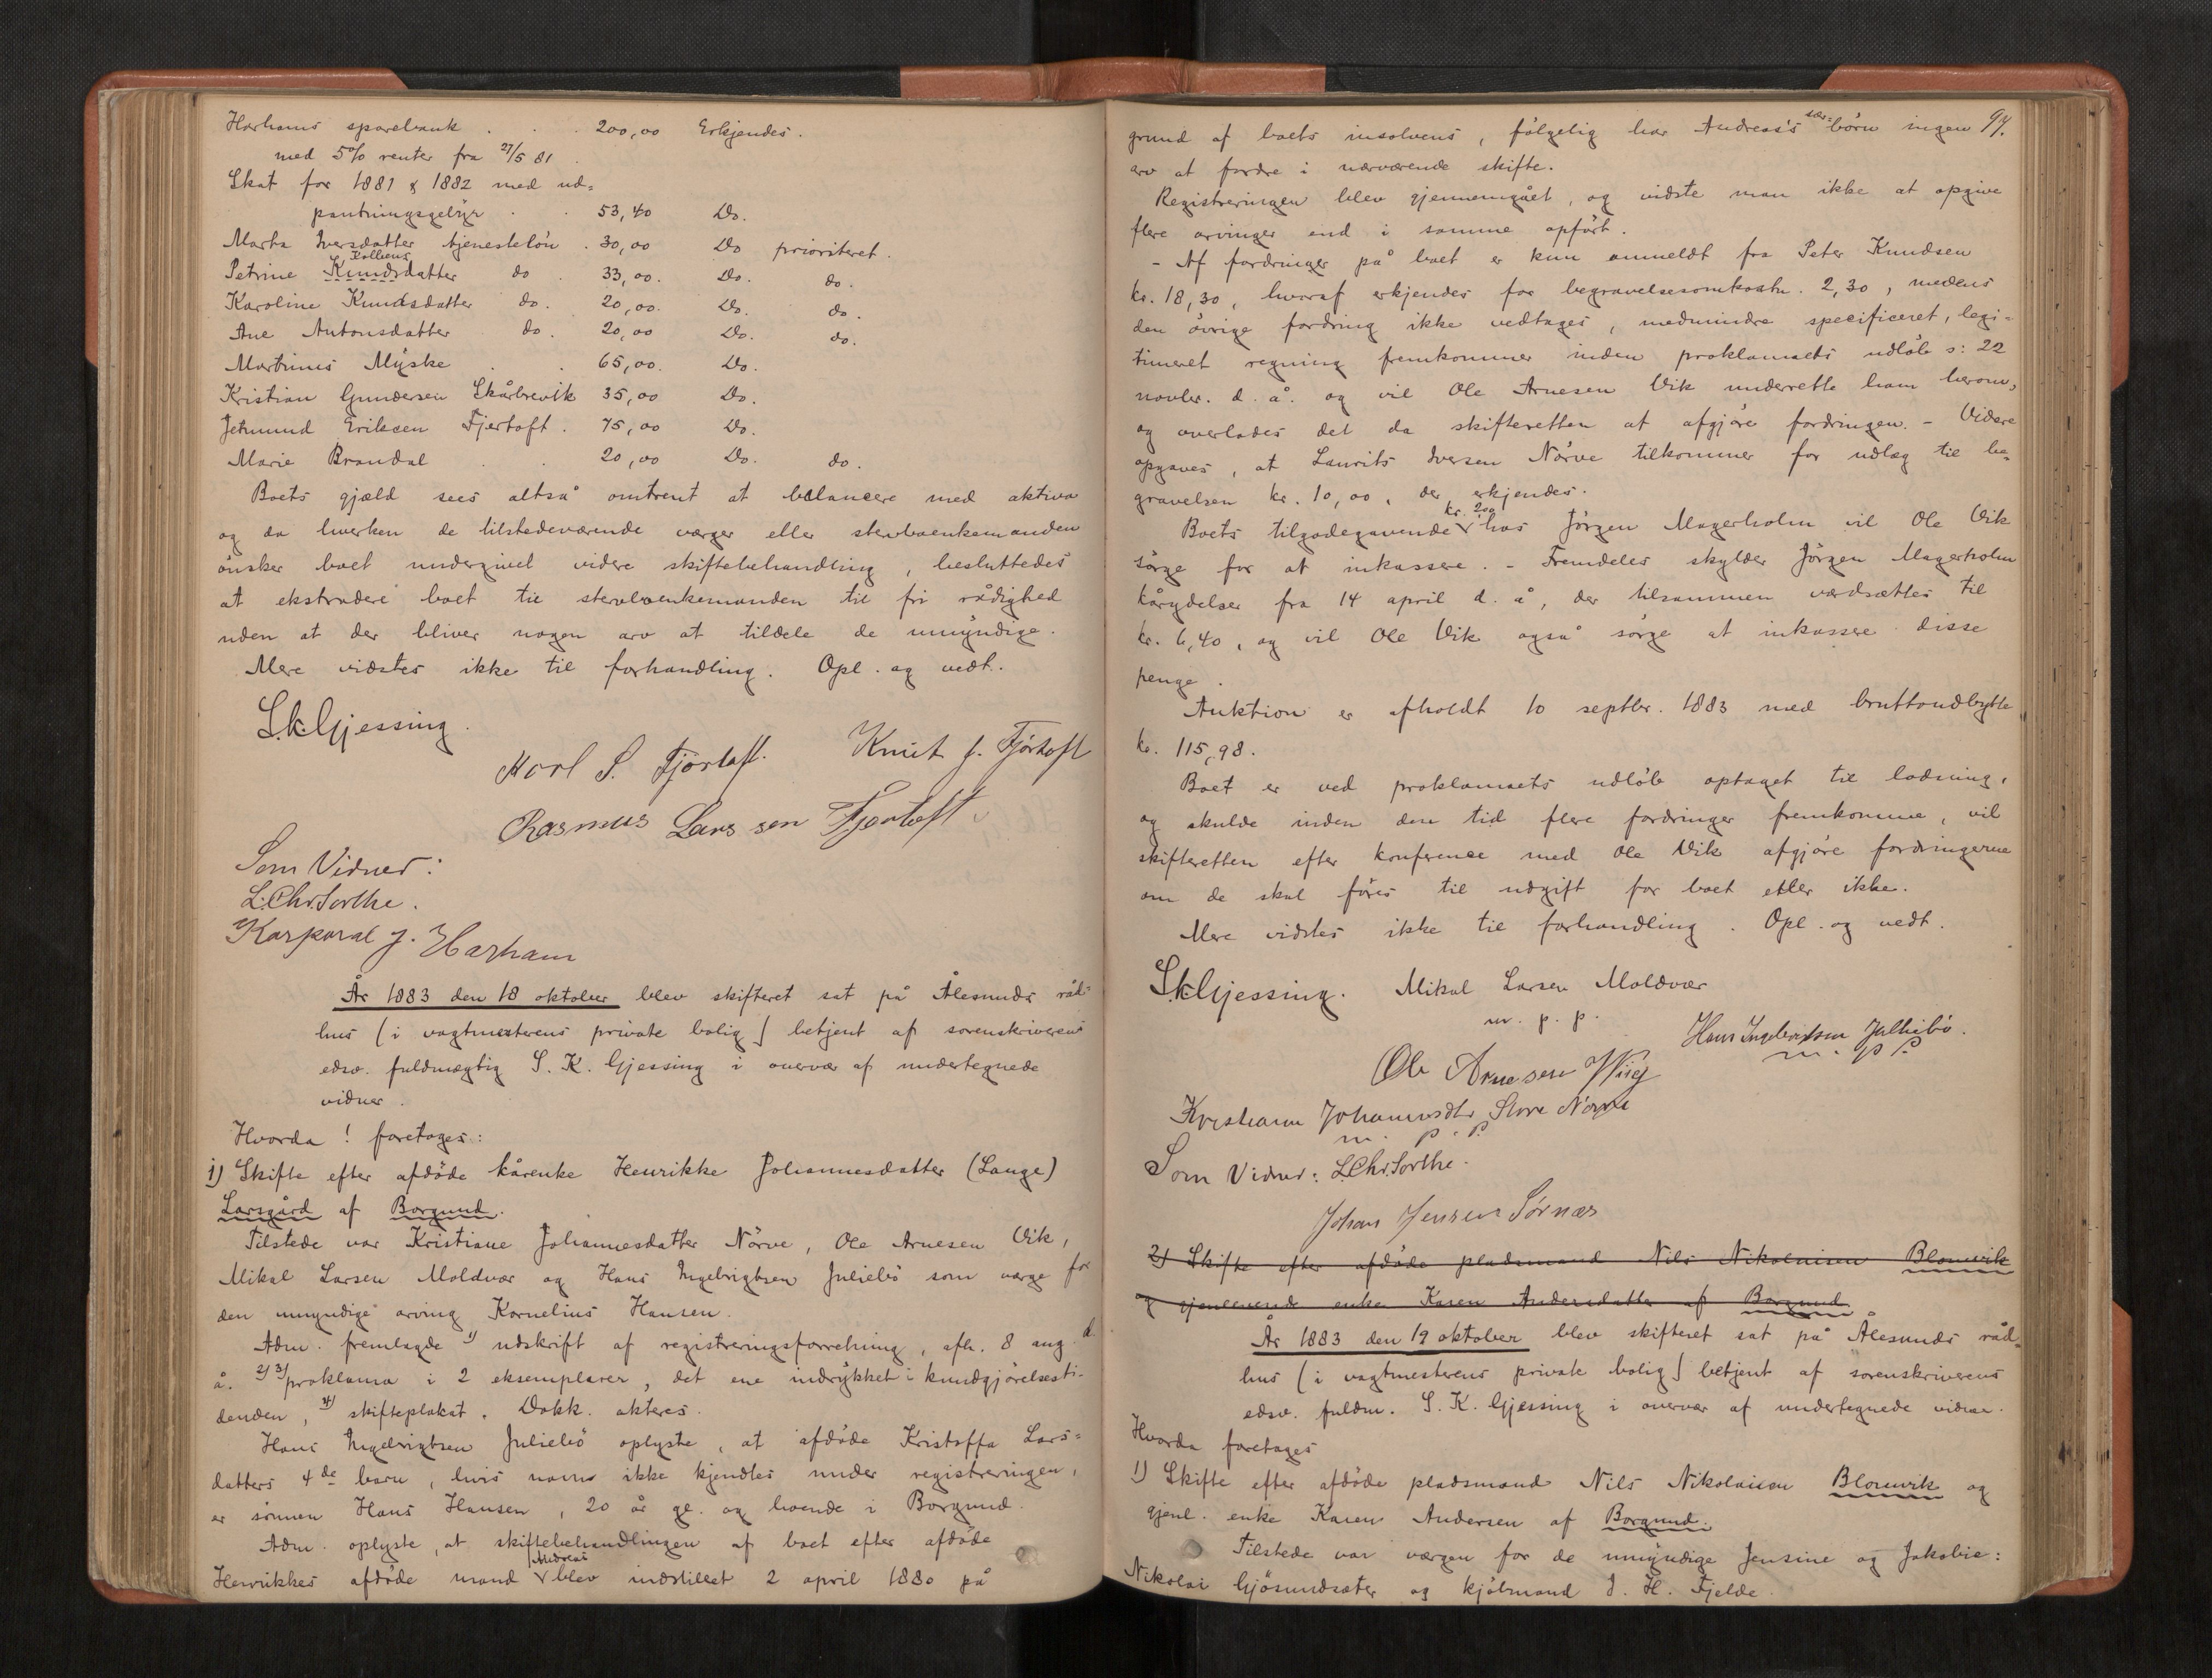 Harhams sparebank . . . 200,00 Erkjendes.
med 5% renter fra 27/5 81 .
Skat for 1881 & 1882 med ud=
pantningsgebyr . . 53,40 Do.
Marta Iversdatter tjenesteløn . 30,00 Do prioriteret.
Kolbens
Petrine Knudsdatter do . 33,00. Do. do.
Karoline Knudsdatter do. 20,00. Do. do.
Ane Antonsdatter do. 20,00 Do. do.
Martinus Myske . . 65,00. Do.
Kristian Gundersen Skårbrevik 35,00 Do.
Jetmund Eriksen Fjertoft . 75,00 Do.
Marie Brandal . . 20,00 Do. do.
Boets gjæld sees altså omtrent at balancere med aktiva
og da hverken de tilstedeværende værger eller stervboenkemanden
ønsker boet undergivet videre skiftebehandling, besluttedes
at ekstradere boet til stervboenkemanden til fri rådighed
uden at der bliver nogen arv at tildele de umyndige.
Mere vidstes ikke til forhandling. Opl. og vedt.
S.K. Gjessing.
Karl S. Fjørtoft. Knut J. Fjørtoft
Rasmus Lars sen Fjørtoft
Som Vidner:
L. Chr. Sorthe.
Korporal J. Harham
År 1883 den 18 oktober blev skifteret sat på Ålesunds råd=
hus (i vagtmesterens private bolig) betjent af sorenskriverens
edsv. fuldmægtig S. K. Gjessing i overvær af undertegnede
vidner.
Hvorda! foretages:
1) Skifte efter afdøde kårenke Henrikke Johannesdatter (Lange)
Larsgård af Borgund.
Tilstede var Kristiane Johannesdatter Nørve, Ole Arnesen Vik,
Mikal Larsen Moldvær og Hans Ingebrigtsen Juliebø som værge for
den umyndige arving Kornelius Hansen.
Adm. fremlagde 1) udskrift af registreringsforretning, afh. 8 aug d.
å. 2) 3) proklama i 2 eksemplarer, det ene indrykket i kundgjørelsesti-
denden, 4) skifteplakat. Dokk. akteres.
Hans Ingebrigtsen Juliebø oplyste, at afdøde Kristoffa Lars=
datters 4de barn, hvis navn ikke kjendtes under registreringen,
er sønnen Hans Hansen, 20 år gl. og boende i Borgund.
Adm. oplyste, at skiftebehandlingen af boet efter afdøde
Andreas
Henrikkes afdøde mand blev indstillet 2 april 1880 på
94.
sær=
grund af boets insolvens, følgelig har Andreas's børn ingen
arv at fordre i nærværende skifte.
Registreringen blev gjennemgået, og vidste man ikke at opgive
flere arvinger end i samme opført.
- Af fordringer på boet er kun anmeldt fra Peter Knudsen
kr. 18,30, hvoraf erkjendes for begravelsesomkostn. 2,30, medens
den øvrige fordring ikke vedtages, medmindre specificeret, legi=
timeret regning fremkommer inden proklamaets udløb s: 22
novbr. d. å. og vil Ole Arnesen Vik underrette ham herom,
og overlades det da skifteretten at afgjøre fordringen. - Videre
opgaves, at Laurits Iversen Nørve tilkommer for udlæg til be=
gravelsen kr. 10,00, der erkjendes.
kr. 200
Boets tilgodehavende hos Jørgen Magerholm vil Ole Vik
sørge for at inkassere. - Fremdeles skylder Jørgen Magerholm
kårydelser fra 14 april d. å, der tilsammen værdsættes til
kr. 6,40, og vil Ole Vik også sørge at inkassere disse
penge.
Auktion er afholdt 10 septbr. 1883 med bruttoudbytte
kr. 115,98.
Boet er ved proklamaets udløb optaget til lodning,
og skulde inden den tid flere fordringer fremkomme, vil
skifteretten efter konference med Ole Vik afgjøre fordringerne
om de skal føres til udgift for boet eller ikke.
Mere vidstes ikke til forhandling. Opl. og vedt.
S.K. Gjessing. Mikal Larsen Moldvær
m. p. p.
Hans Ingebrigtsen Julliebø.
m. p. p.
Ole Arnesen Wiig
Kristiane Johannesdtr Store Nørve
m. p. p.
Som Vidner: L. Chr. Sorthe.
Johan Jensen Sørnæs
2) Skifte efter afdøde pladsmand Nils Nikolaisen Blomvik
og gjenlevende enke Karen Andersdatter af Borgund.
År 1883 den 19 oktober blev skifteret sat på Ålesunds råd=
hus (i vagtmesterens private bolig) betjent af sorenskriverens
edsv. fuldm. S. K. Gjessing i overvær af undertegnede vidner.
Hvorda foretages
1) Skifte efter afdøde pladsmand Nils Nikolaisen Blomvik og
gjenl. enke Karen Andersen af Borgund.
Tilstede var værgen for de umyndige Jensine og Jakobie:
Nikolai Gjøsundsæter og kjøbmand J. H. Fjelde.